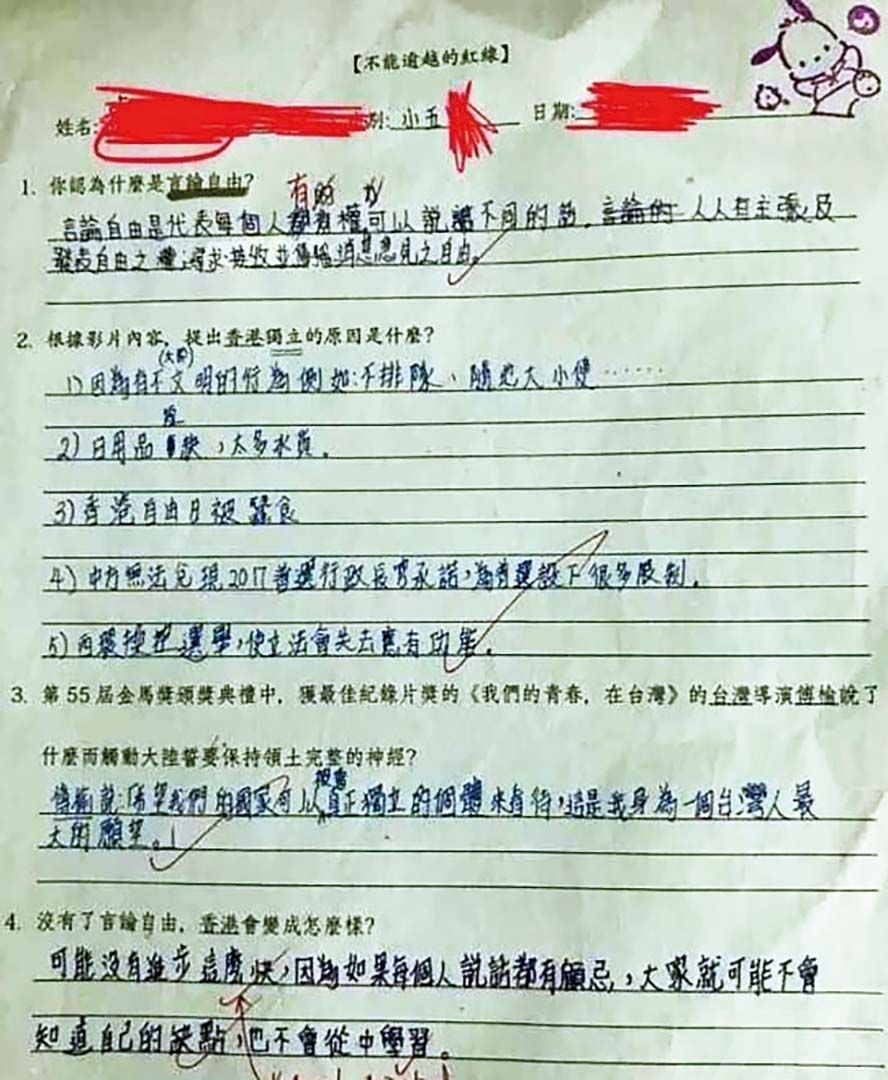 【不能逾越的紅線】
姓名: 別: 小五 日期:
1. 你認為什麼是言論自由?
有的
言論自由是代表每個人都有權可以說講不同的話。言論的 人人有主張及
發表自由之權;尋求接收並傳播消息意見之自由。
2. 根據影片內容,提出香港獨立的原因是什麼?
1) 因為有不文明的行為例如:不排隊、隨地大小便……
2) 日用品 缺,太多水貨。
3) 香港自由日被蠶食
4) 中方無法兌現2017普選行政長官承諾,為普選設下很多限制。
5) 再被操控選舉,使立法會失去應有功能。
3. 第55屆金馬獎頒獎典禮中,獲最佳紀錄片獎的《我們的青春,在台灣》的台灣導演傅榆說了
什麼而觸動大陸誓要保持領土完整的神經?
傅榆說:「希望我們的國家可以被當真正獨立的個體來看待,這是我身為一個台灣人最
大的願望。」
4. 沒有了言論自由,香港會變成怎麼樣?
可能沒有進步這麼快,因為如果每個人說話都有顧忌,大家就可能不會
知道自己的缺點,也不會從中學習。